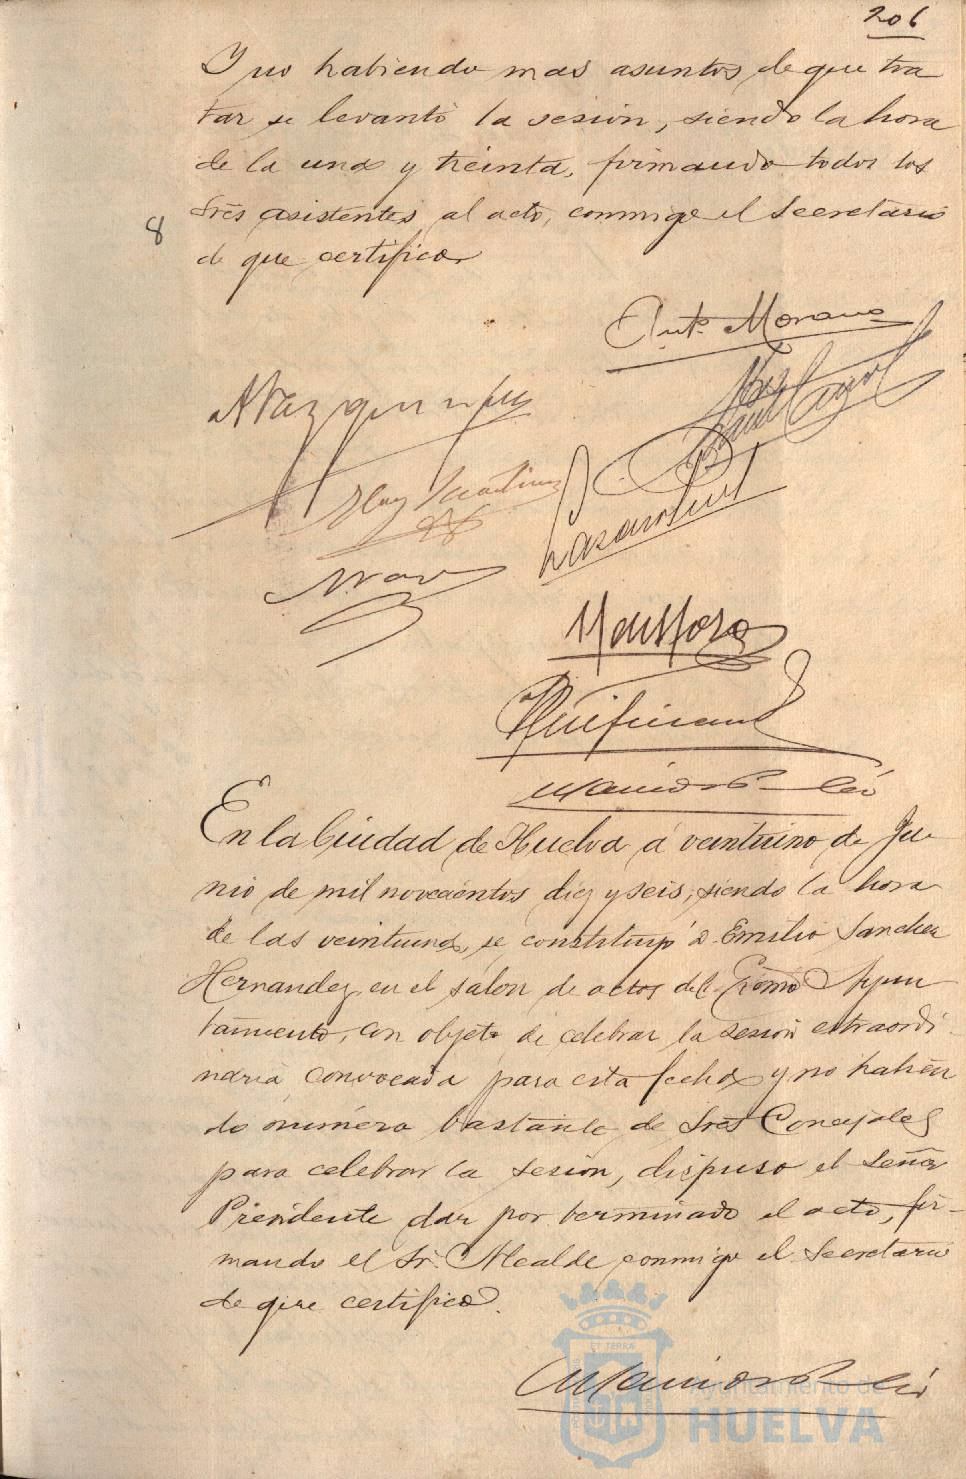 206
Y no habiendo mas asuntos de que tra
tar se levantó la sesión, siendo la hora
de la una y treinta, firmando todos los
Srēs asistentes al acto, conmigo el Secretario
8
de que certifico
Antº Moreno
En la Ciudad de Huelva á veintiuno de Ju
nio de mil novecientos diez y seis, siendo la hora
de las veintiuna, se constituyó D. Emilio Sanchez
Hernandez, en el salon de actos del Excmo Ayun
tamiento, con objeto de celebrar la sesión extraordi
naria convocada para esta fecha y no habien
do número bastante de Sres Concejales
para celebrar la sesión, dispuso el Señor
Presidente dar por terminado el acto, fir-
mando el Sr. Alcalde conmigo el Secretario
de que certifico.
ET TERRÆ
Ayuntamiento de
HUELVA